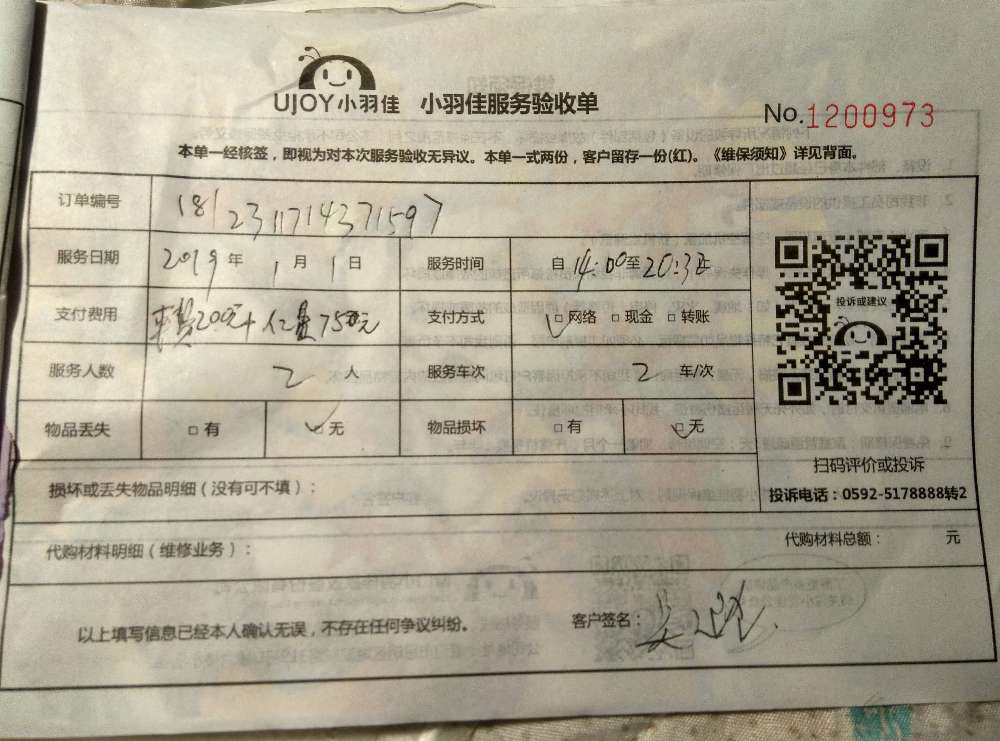 UJOY小羽佳 小羽佳服务验收单
No.1200973
本单一经核签，即视为对本次服务验收无异议。本单一式两份，客户留存一份(红)。《维保须知》详见背面。
订单编号 181231171437159７
服务日期 2019年 1月1日 服务时间 自14:00至20:3止
支付费用 车费200元+人工费750元 支付方式 网络 □现金 □转账
服务人数 2人 服务车次 2车/次
物品丢失 □有 □无 物品损坏 □有 □无
投诉或建议
扫码评价或投诉
投诉电话：0592-5178888转2
损坏或丢失物品明细（没有可不填）：
代购材料明细（维修业务）： 代购材料总额： 元
以上填写信息已经本人确认无误，不存在任何争议纠纷。 客户签名：